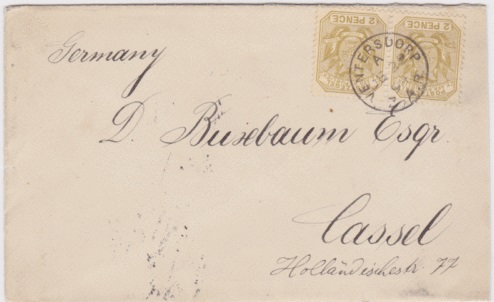 2 PENCE 2 PENCE
VENTERSDORP
Z.A.R.
Germany
D. Busebaum Esqr.
Cassel
Holländischestr 77